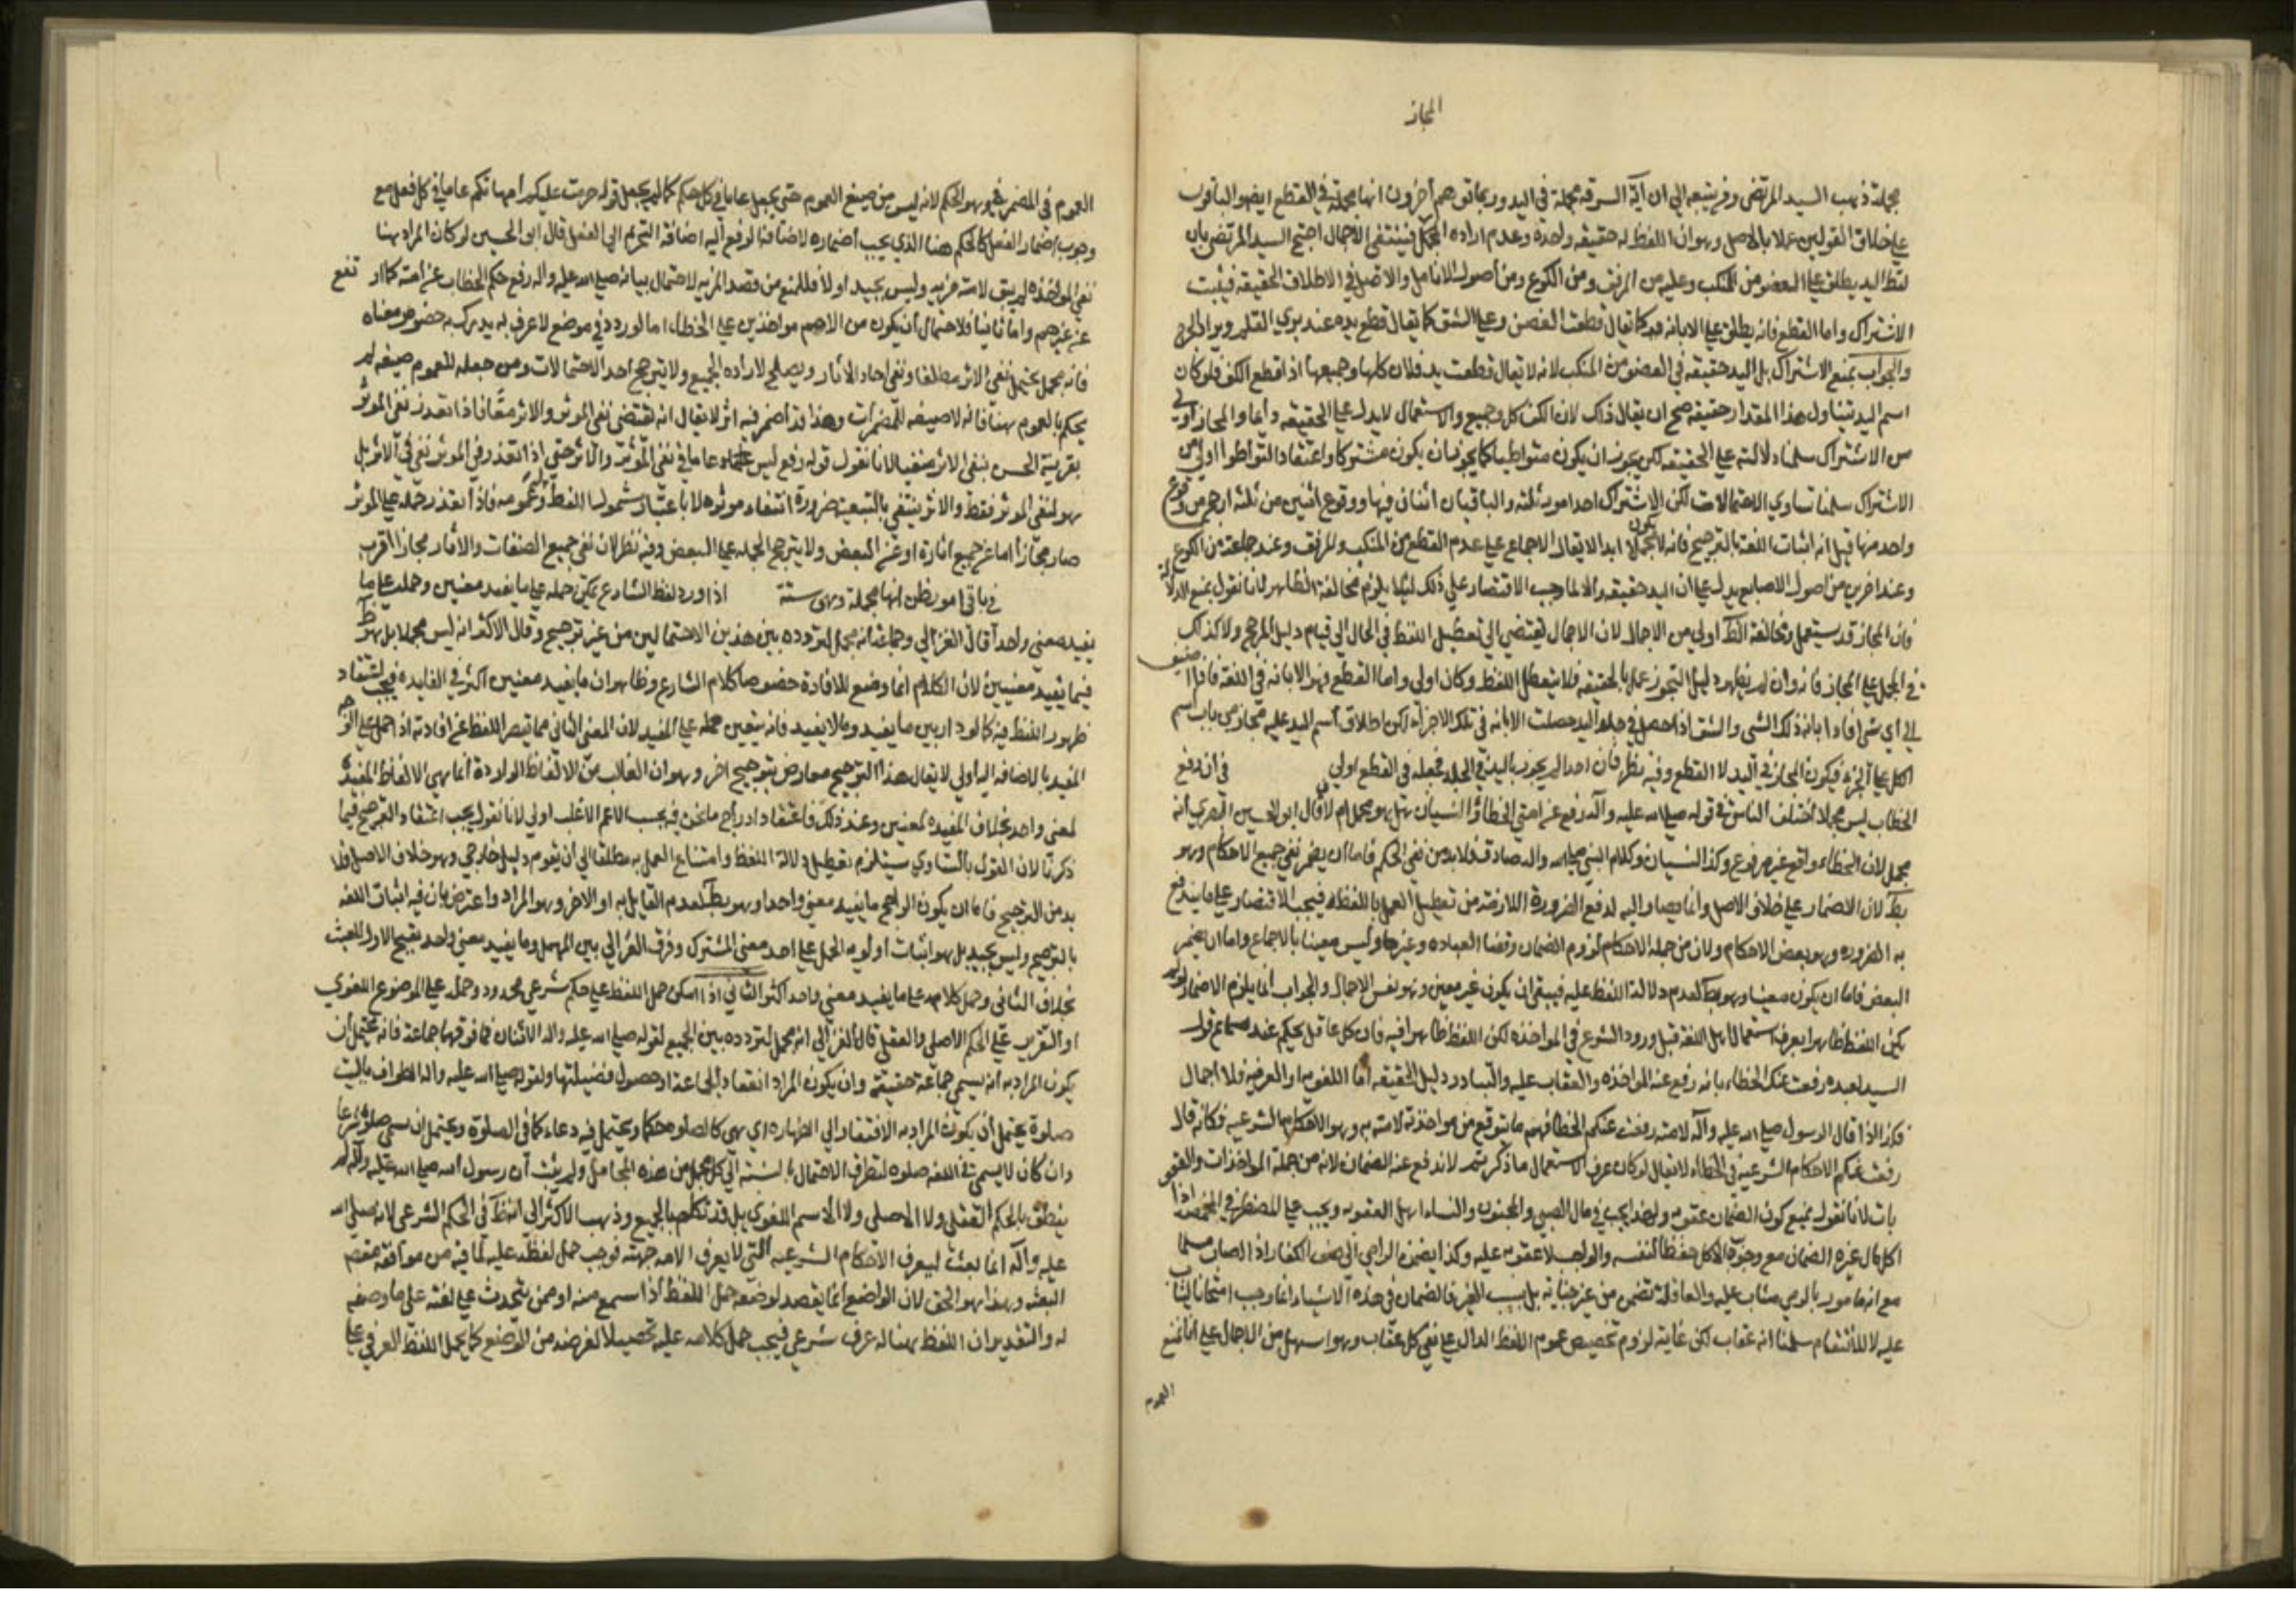 المجاز
مجملة ذهب السيد المرتضى ومن تبعه الى ان آية السرقة مجملة في اليد وربما توهم آخرون انها مجملة في القطع ايضا والباقون
على خلاف القولين عملا بالاصل وهو ان اللفظ له حقيقة واحدة وعدم ارادة الكل فينتفي الاجمال احتج السيد المرتضى بان
لفظ اليد يطلق على العضو من المنكب وعليه من المرفق ومن الكوع ومن اصول الانامل والاصل في الاطلاق الحقيقة فيثبت
الاشتراك واما القطع فانه يطلق على الابانة كما يقال قطعت الغصن وعلى الشق كما يقال قطع يده عند بري القلم ويراد الجرح
والجواب بمنع الاشتراك بل اليد حقيقة في العضو من المنكب لانه لا يقال قطعت يد فلان كلها وجميعها اذا قطع الكف فلو كان
اسم اليد يتناول هذا المقدار حقيقة صح ان يقال ذلك لان الكف كل وجميع والاستعمال لا يدل على الحقيقة دائما والمجاز اولى
من الاشتراك سلمنا دلالته على الحقيقة لكن يجوز ان يكون متواطيا كما يجوز ان يكون مشتركا واعتقاد التواطؤ اولى من
الاشتراك سلمنا تساوي الاحتمالات لكن الاشتراك احد امور ثلثة والباقيان اثنان فيها ووقوع اثنين من ثلثة ارجح من وقوع
واحد منها قيل انه اثبات اللغة بالترجيح فانه لا يكون مجملا ابدا لا يقال الاجماع على عدم القطع من المنكب والمرفق وعند جماعة من الكوع
وعند اخرين من اصول الاصابع يدل على ان اليد حقيقة والا لما وجب الاقتصار على ذلك لئلا يلزم مخالفة الظاهر لانا نقول بمنع الدلالة
فان المجاز قد يستعمل ومخالفة الظ اولى من الاجمال لان الاجمال يقتضي الى تعطيل اللفظ في الحال الى قيام دليل المرجح ولا كذلك
في الحمل على المجاز فانه وان لم يظهر دليل التجوز عمل بالحقيقة فلا يتعطل اللفظ وكان اولى واما القطع فهو الابانة في اللغة فاذا اضيف
الى اي شي افاد ابانة ذلك الشي والشق اذا حصل في جلد اليد حصلت الابانة في تلك الاجزاء لكن اطلاق اسم اليد عليه مجاز من باب اسم
الكل على الجزء فيكون المجاز في اليد لا القطع وفيه نظر فان احدا لم يجوز باليد في الجلد فجعله في القطع اولى في ان رفع
الخطاب ليس مجملا اختلف الناس في قوله صلى الله عليه وآله رفع عن امتي الخطاء والنسيان هل هو مجمل ام لا قال ابو الحسين البصري انه
مجمل لان الخطاء واقع غير مرفوع وكذا النسيان وكلام النبي صلى الله واله صادق فلا بد من نفي الحكم فاما ان يضمر نفي جميع الاحكام وهو
بط لان الاضمار على خلاف الاصل وانما يصار اليه لدفع الضرورة اللازمة من تعطيل العمل باللفظ فيجب الاقتصار على ما يندفع
به الضرورة وهو بعض الاحكام ولان من جملة الاحكام لزوم الضمان وقضا العبادة وغيرها وليس معينا بالاجماع واما ان يضمر
البعض فاما ان يكون معينا وهو بط لعدم دلالة اللفظ عليه فيبقى ان يكون غير معين وهو نفس الاجمال والجواب انما يلزم الاضمار لو لم
يكن اللفظ ظاهرا بعرف استعمال اهل اللغة قبل ورود الشرع في المواخذة لكن اللفظ ظاهرا فيه فان كل عاقل يحكم عند سماع قول
السيد لعبده رفعت عنك الخطاء بانه رفع عنه المواخذة والعقاب عليه والتبادر دليل الحقيقة اما اللغوية او العرفية فلا اجمال
فكذا اذا قال الرسول صلى الله عليه وآله لامته رفعت عنكم الخطا فهم ما يتوقع من مواخذته لامته به وهو الاحكام الشرعية فكانه قال
رفعت عنكم الاحكام الشرعية في الخطاء لا يقال لو كان عرف الاستعمال ما ذكرتم لاندفع عنه الضمان لانه من جملة المواخذات والعقو
بات لانا نقول نمنع كون الضمان عقوبة ولهذا يجب في مال الصبي والمجنون وليسا اهل العقوبة ويجب على المضطر في المخمصة اذا
اكل مال غيره الضمان مع وجوب الاكل حفظا لنفسه والواجب لا عقوبة عليه وكذا يضمن الرامي الى صف الكفار اذا اصاب مسلما
مع انه مامور بالرمي مثاب عليه والعاقلة تضمن من غير جناية بل بسبب الغير فالضمان في هذه الاشياء انما وجب امتحانا ليثاب
عليه لا للانتقام سلمنا انه عقاب لكن غايته لزوم تخصيص عموم اللفظ الدال على نفي كل عقاب وهو اسهل من الاجمال على انا نمنع
العموم
العموم في المضمر فيه وهو الحكم لانه ليس من صيغ العموم حتى يجعل عاما في كل حكم كما لم يجعل قوله حرمت عليكم امهاتكم عاما في كل فعل مع
وجوب اضمار الفعل كالحكم هنا الذي يجب اضماره لاضافة الرفع اليه اضافة التحريم الى الفعل قال ابو الحسين لو كان المراد هنا
نفي المواخذة لم يبق لامته مزية وليس بجيد اولا فللمنع من قصد المزية لاحتمال بيانه صلى الله عليه واله رفع حكم الخطاب عن امته كما ارتفع
عن غيرهم واما ثانيا فلاحتمال ان يكون من الامم مواخذين على الخطاء اما لو ورد في موضع لا عرف له يدرك به خصوص معناه
فانه مجمل يحتمل نفي الاثر مطلقا ونفي احاد الاثار ويصلح لارادة الجميع ولا يترجح احد الاحتمالات ومن جعله للعموم صيغة لم
يحكم بالعموم هنا فانه لا صيغة للمضمرات وهذا قد اضمر فيه اثر لا يقال انه يقتضي نفي الموثر والاثر معا فاذا تعذر نفي الموثر
بقرينة الحس بقي الاثر منفيا لانا نقول قوله رفع ليس عاما في نفي الموثر والاثر حتى اذا تعذر في الموثر نفي في الاثر بل
هو لنفي الموثر فقط والاثر ينتفي بالتبعية ضرورة انتفاء موثره لا باعتبار شمول اللفظ وعمومه فاذا تعذر حمله على الموثر
صار مجازا اما عن جميع اثاره او عن البعض ولا يترجح الجملة على البعض وفيه نظر لان نفي جميع الصفات والاثار مجازا اقرب
في باقي امور يظن انها مجملة وهي ستة اذا ورد لفظ الشارع يمكن حمله على ما يفيد معنيين وحمله على ما
يفيد معنى واحدا قال الغزالي وجماعة انه مجمل لتردده بين هذين الاحتمالين من غير ترجيح وقال الاكثر انه ليس مجملا بل هو ظ
فيما يفيد معنيين لان الكلام انما وضع للافادة خصوصا كلام الشارع وظاهر ان ما يفيد معنيين اكثر في الفايدة فيجب اعتقاد
ظهور اللفظ فيه كما لو دار بين ما يفيد وما لا يفيد فانه يتعين حمله على المفيد لان المعنى الثاني مما يقصر اللفظ عن افادته اذا حمل على الوجه
المفيد بالاضافة اليه اولى لا يقال هذا الترجيح معارض بترجيح اخر وهو ان الغالب من الالفاظ الواردة انما هي الالفاظ المفيدة
لمعنى واحد بخلاف المفيدة لمعنيين وعند ذلك فاعتقاد ادراج ما نحن فيه تحت الاعم الاغلب اولى لانا نقول يجب اعتقاد الترجيح فيما
ذكرنا لان القول بالتساوي يستلزم تعطيل دلالة اللفظ وامتناع العمل به مطلقا الى ان يقوم دليل خارجي وهو خلاف الاصل فلا
بد من الترجيح فاما ان يكون الراجح ما يفيد معنى واحدا وهو بط لعدم القايل به او الاخر وهو المراد واعترض بان فيه اثبات اللغة
بالترجيح وليس بجيد بل هو اثبات اولوية الحمل على احد معنى المشترك وفرق الغزالي بين المهمل وما يفيد معنى واحد بقبح الاول للعبث
بخلاف الثاني وحمل كلامه على ما يفيد معنى واحد اكثر الثاني اذا امكن حمل اللفظ على حكم شرعي محدود وحمله على الموضوع اللغوي
او التقرير على الحكم الاصلي والعقلي قال الغزالي انه مجمل لتردده بين الجميع لقوله صلى الله عليه واله الاثنان فما فوقها جماعة فانه يحتمل ان
يكون المراد به انه يسمى جماعة حقيقة وان يكون المراد انعقاد الجماعة او حصول فضيلتها ولقوله صلى الله عليه واله الطواف بالبيت
صلوة يحتمل ان يكون المراد به الافتقار الى الطهارة اي هي كالصلوة حكما ويحتمل فيه دعاء كما في الصلوة ويحتمل ان يسمى صلوة شرعا
وان كان لا يسمى في اللغة صلوة لتطرف الاحتمال بالنسبة الى كل محمل من هذه المحامل ولم يثبت ان رسول الله صلى الله عليه وآله لم
ينطق بالحكم العقلي ولا الاصلي ولا الاسم اللغوي بل قد تكلم بالجميع وذهب الاكثر الى انه ظ في الحكم الشرعي لانه صلى الله
عليه وآله انما بعث ليعرف الاحكام الشرعية التي لا يعرف الا من جهته فوجب حمل لفظه عليه لما فيه من موافقة مقصد
البعثة وهذا هو الحق لان الواضع انما يقصد لوضعه حمل اللفظ اذا سمع منه او ممن يتحدث على لغته على ما وضعه
له والتقدير ان اللفظ هنا له عرف شرعي فيجب حمل كلامه عليه تحصيلا لغرضه من الوضع كما يحمل اللفظ العرفي على